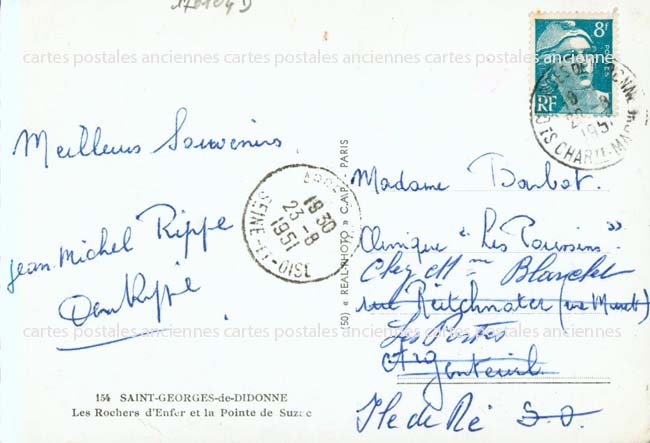 170104 D
cartes postales anciennes cartes postales anciennes cartes postales anciennes
8f
POSTES
RF
1951
Meilleurs Souvenirs
Jean-Michel Rippe
Rippe
ARGENTEUIL
18 30
23-8
1951
SEINE-ET-OISE
(50) « REAL-PHOTO » C.A.P. - PARIS
Madame Barbat.
Clinique "Les Poussins".
Chez Mme Blanchet
rue
Les Portes
Argenteuil
Ile de Ré S.O.
cartes postales anciennes cartes postales anciennes cartes postales anciennes
154 SAINT-GEORGES-de-DIDONNE
Les Rochers d'Enfer et la Pointe de Suzac